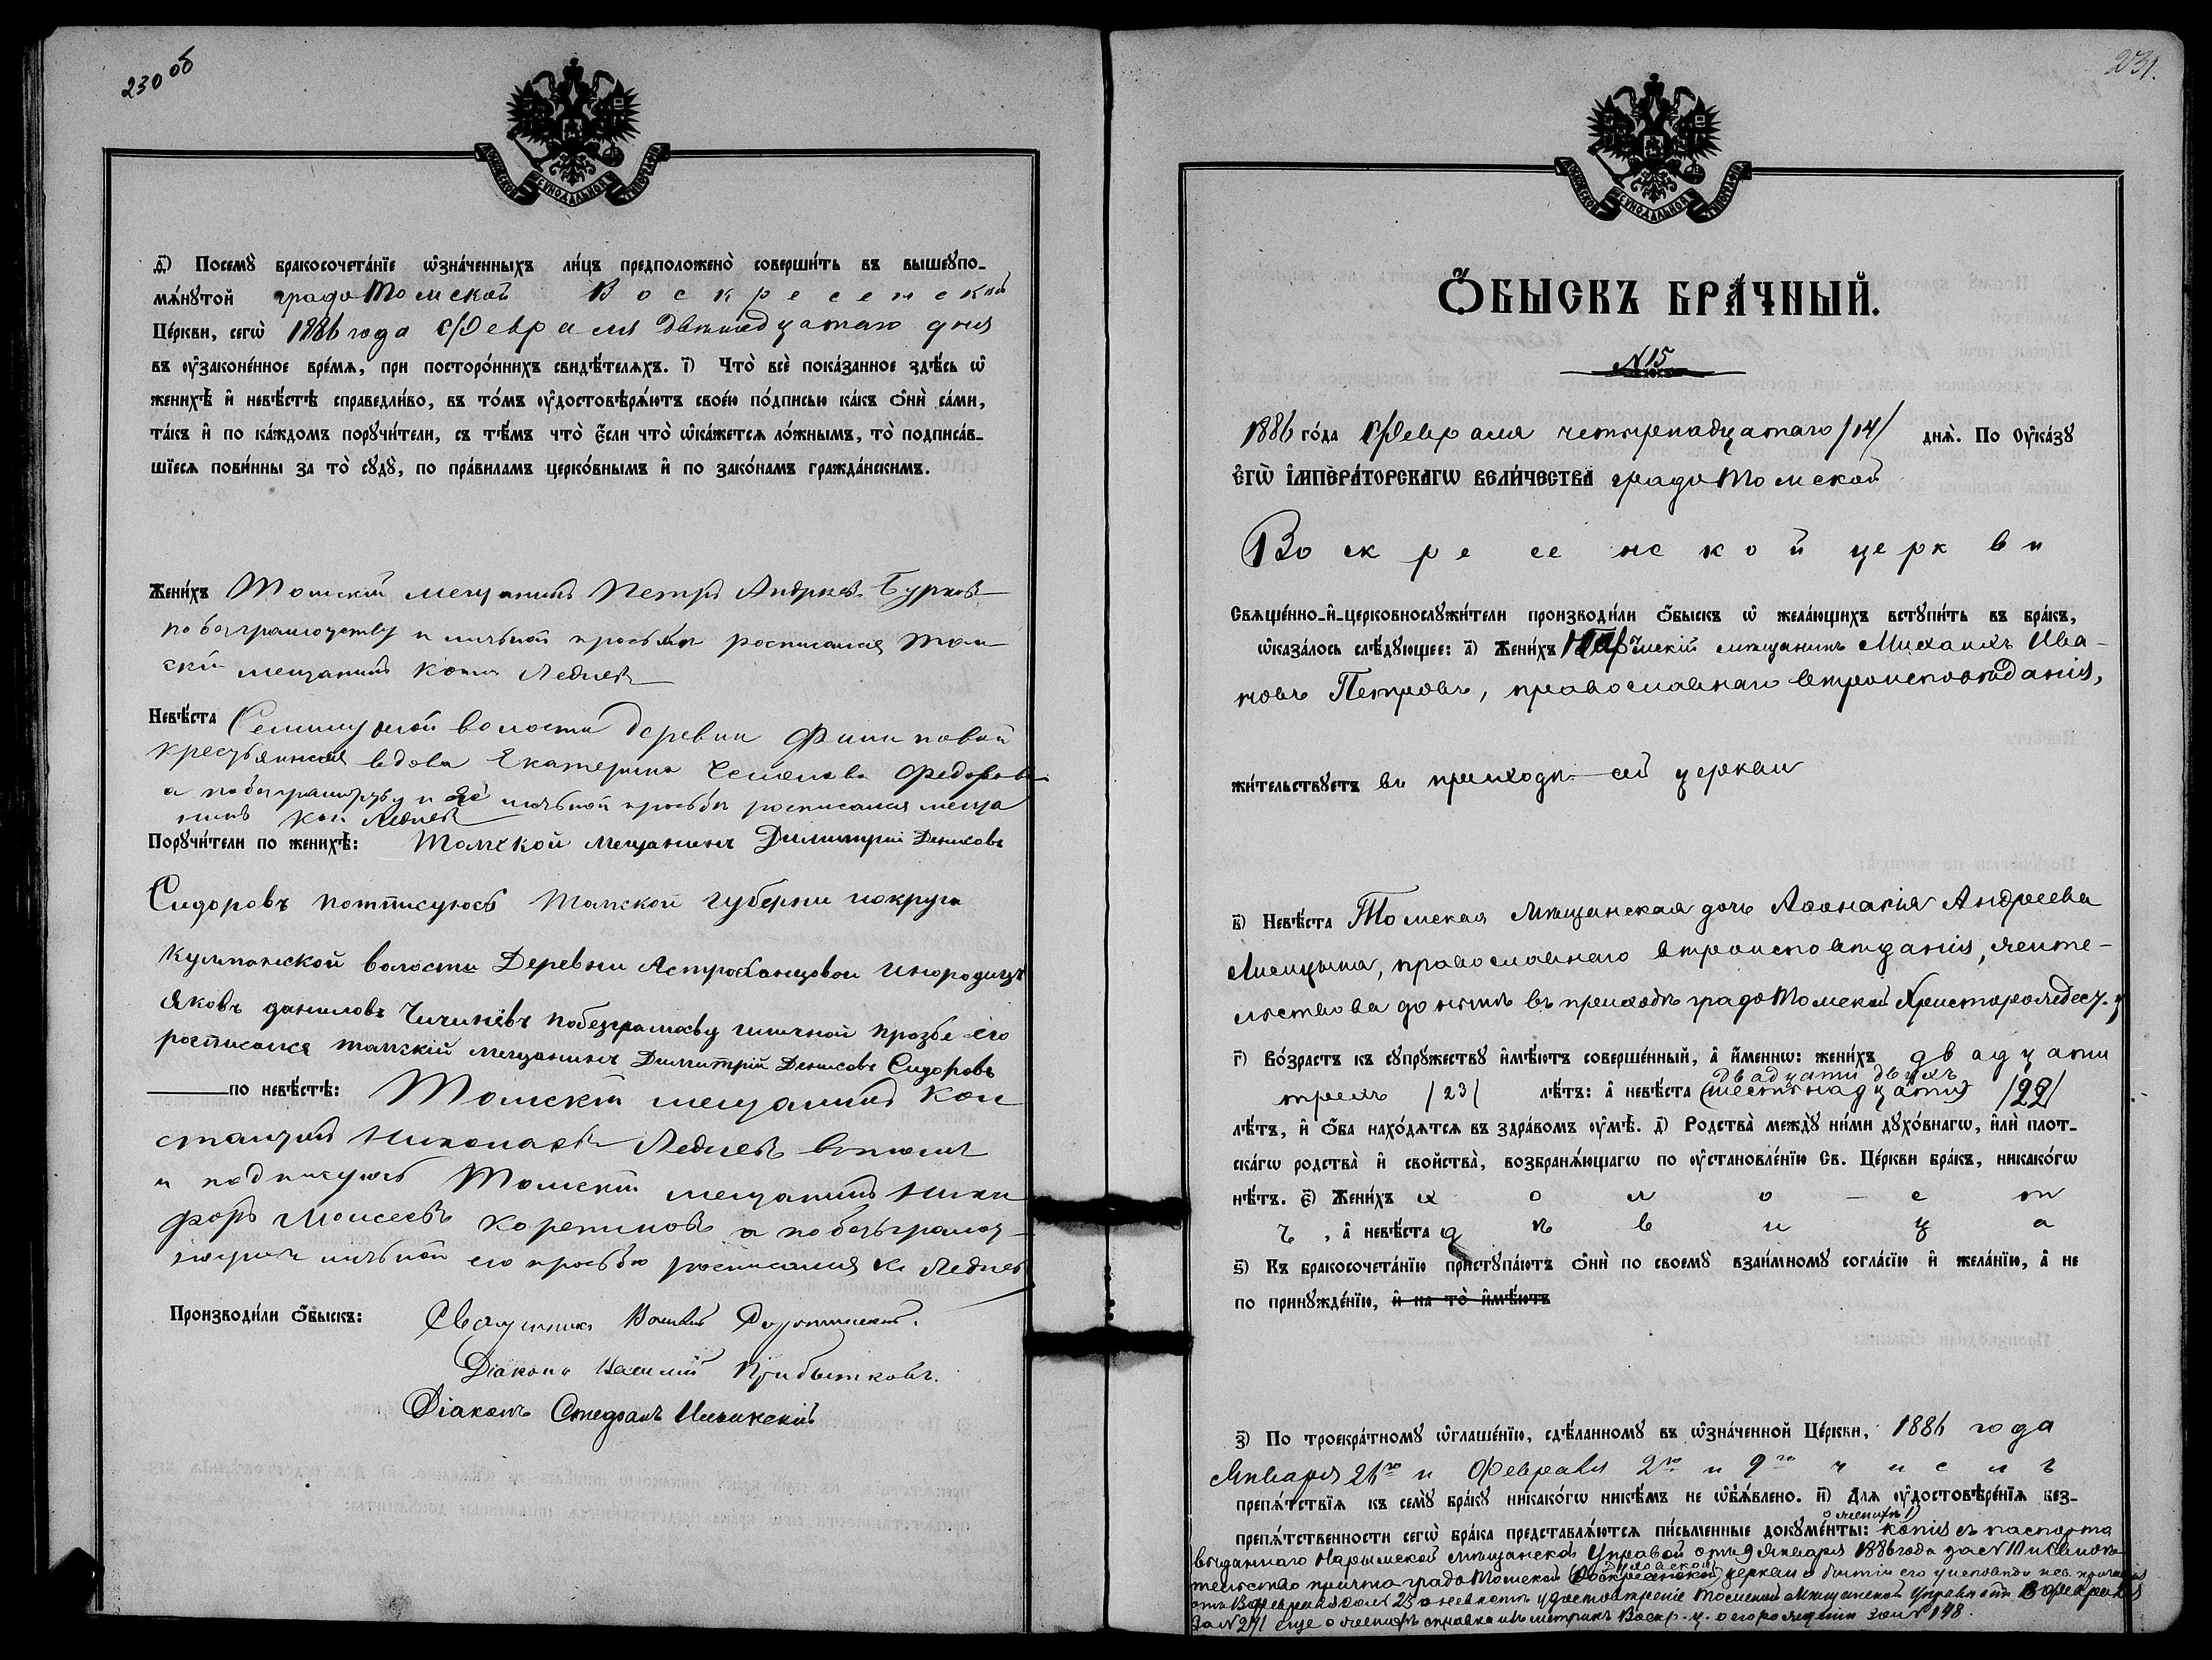 230 об
МОСКОВСКОЙ СѴНОДАЛЬНОЙ ТИПОГРАФІИ
д҃і) Посемꙋ̀ бракосочета́нїе ѡ҆зна́ченныхъ ли́цъ предположено̀ соверши́ть въ вышеꙋпо-
мѧ́нꙋтой градо Томской Воскресенской
Це́ркви, сегѡ̀ 1886 года Февраля двенадцатаго дня
въ ᲂу҆законе́нное вре́мѧ, при посторо́ннихъ свидѣ́телѧхъ. і҃) Что̀ всѐ пока́занное здѣ́сь ѡ҆
женихѣ̀ и҆ невѣ́стѣ справедли́во, въ то́мъ ᲂу҆достовѣрѧ́ютъ свое́ю по́дписью ка́къ ѻ҆нѝ са́ми,
та́къ и҆ по ка́ждомъ порꙋчи́тели, съ тѣ́мъ что̀ є҆́сли что̀ ѡ҆ка́жетсѧ ло́жнымъ, то̀ подписа́в-
шїесѧ пови́нны за то̀ сꙋдꙋ̀, по пра́виламъ церко́внымъ и҆ по зако́намъ гражда́нскимъ.
Жени́хъ Томскій мещанинъ Петръ Андреевъ Бурковъ
по безграмотству и личной просьбе росписался Том
скій мещанинъ Конст Ледневъ
Невѣ́ста волости деревни Филиповой
крестьянская вдова Екатерина Семенова Федорова
а по безграмотству и ее личной просьбе росписался меща
нинъ Кон Леднев
Порꙋчи́тели по женихѣ̀: Томской мещанинъ Димитрий Денисовъ
Сидоровъ потписуюсь Томской губерни иокруга
волости Деревни Астроханцовои инородицъ
Яковъ данилов побезграмоству иличной прозбе его
росписался томскій мещанинъ Димитрій Денисовъ Сидоровъ
по невѣ́стѣ: Томскій мещанинъ Кон
стантинъ Николаевъ Леднев
и подписуюсь Томскій мещанинъ Ники
форъ Моисеевъ а по безъграмот
личной его просьбю росписался К. Леднев
Производи́ли ѻ҆́быскъ: Священникъ
Діаконъ Василій Прибытковъ.
Діаконъ Стефанъ
231.
МОСКОВСКОЙ СѴНОДАЛЬНОЙ ТИПОГРАФІИ
Ѻ҆́БЫСКЪ БРА́ЧНЫЙ.
N 15
1886 го́да Февраля четырнадцатаго /14/ днѧ̀. По Оу҆ка́зꙋ
Є҆ГѠ̀ И҆МПЕРА́ТОРСКАГѠ ВЕЛИ́ЧЕСТВА градо Томской
Воскресенской церкви
Свѧще́нно-и҆-церковнослꙋжи́тели производи́ли ѻ҆́быскъ ѡ҆ жела́ющихъ встꙋпи́ть въ бра́къ,
ѡ҆каза́лось слѣ́дꙋющее: а҃) Жени́хъ Нарымскій мѣщанинъ Михаилъ Ива-
новъ Петровъ, православнаго вѣроисповѣданія,
жи́тельствꙋетъ въ приходѣ сей церкви
в҃) Невѣ́ста Томская мѣщанская дочь Аѳанасія Андреева
православнаго вѣроисповѣданія, жите-
льствова до нынѣ въ приходѣ градо Томской Христорождест. ц
г҃) Во́зрастъ къ сꙋпрꙋ́жествꙋ и҆мѣ́ютъ соверше́нный, а҆ и҆́меннѡ: жени́хъ двадцати
двадцати двухъ
трехъ /23/ лѣ́тъ: а҆ невѣ́ста (шестнадцати) /22/
лѣ́тъ, и҆ ѻ҆́ба нахо́дѧтсѧ въ здра́вомъ ᲂу҆мѣ̀. д҃) Родства̀ междꙋ̀ ни́ми дꙋхо́внагѡ, и҆лѝ плот-
ска́гѡ родства̀ и҆ сво́йства, возбранѧ́ющагѡ по ᲂу҆становле́нїю Св. Це́ркви бра́къ, никако́гѡ
нѣ́тъ. є҃) Жени́хъ холост
ъ, а҆ невѣ́ста дѣвица
ѕ҃) Къ бракосочета́нїю пристꙋпа́ютъ ѻ҆нѝ по своемꙋ̀ взаи́мномꙋ согла́сїю и҆ жела́нїю, а҆ не
по принꙋжде́нїю, и҆ на то̀ и҆мѣ́ютъ
з҃) По троекра́тномꙋ ѡ҆глаше́нїю, сдѣ́ланномꙋ въ ѡ҆зна́ченной Це́ркви, 1886 года
Января 26го и Февраля 2го и 9го числъ
препѧ́тствїѧ къ семꙋ̀ бра́кꙋ никако́гѡ никѣ́мъ не ѡ҆б̾ѧ́влено. и҃) Длѧ ᲂу҆достовѣре́нїѧ без-
о женихѣ 1)
препѧ́тственности сегѡ̀ бра́ка представлѧ́ютсѧ пи́сьменные докꙋме́нты: копія съ паспорта
выданнаго Нарымской мѣщанской Управой отъ 9 Января 1886 года за N
тельство причта градо Томской (Воскресенской) церкви о бытіи его у исповѣди
о невѣстѣ удостовѣреніе Томской Мѣщанской Управы отъ Февраля
за N 271 еще о женихѣ справка изъ метрикъ Воскр. ц. о его рожденіи за N 148.